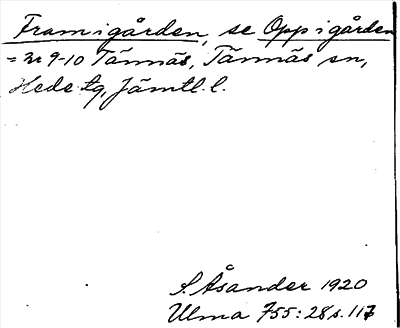 Framigården, se Oppigården
= nr 9-10 Tännäs, Tännäs sn,
Hede tg, Jämtl. l.
S. Åsander 1920
Ulma 755:28 s. 117